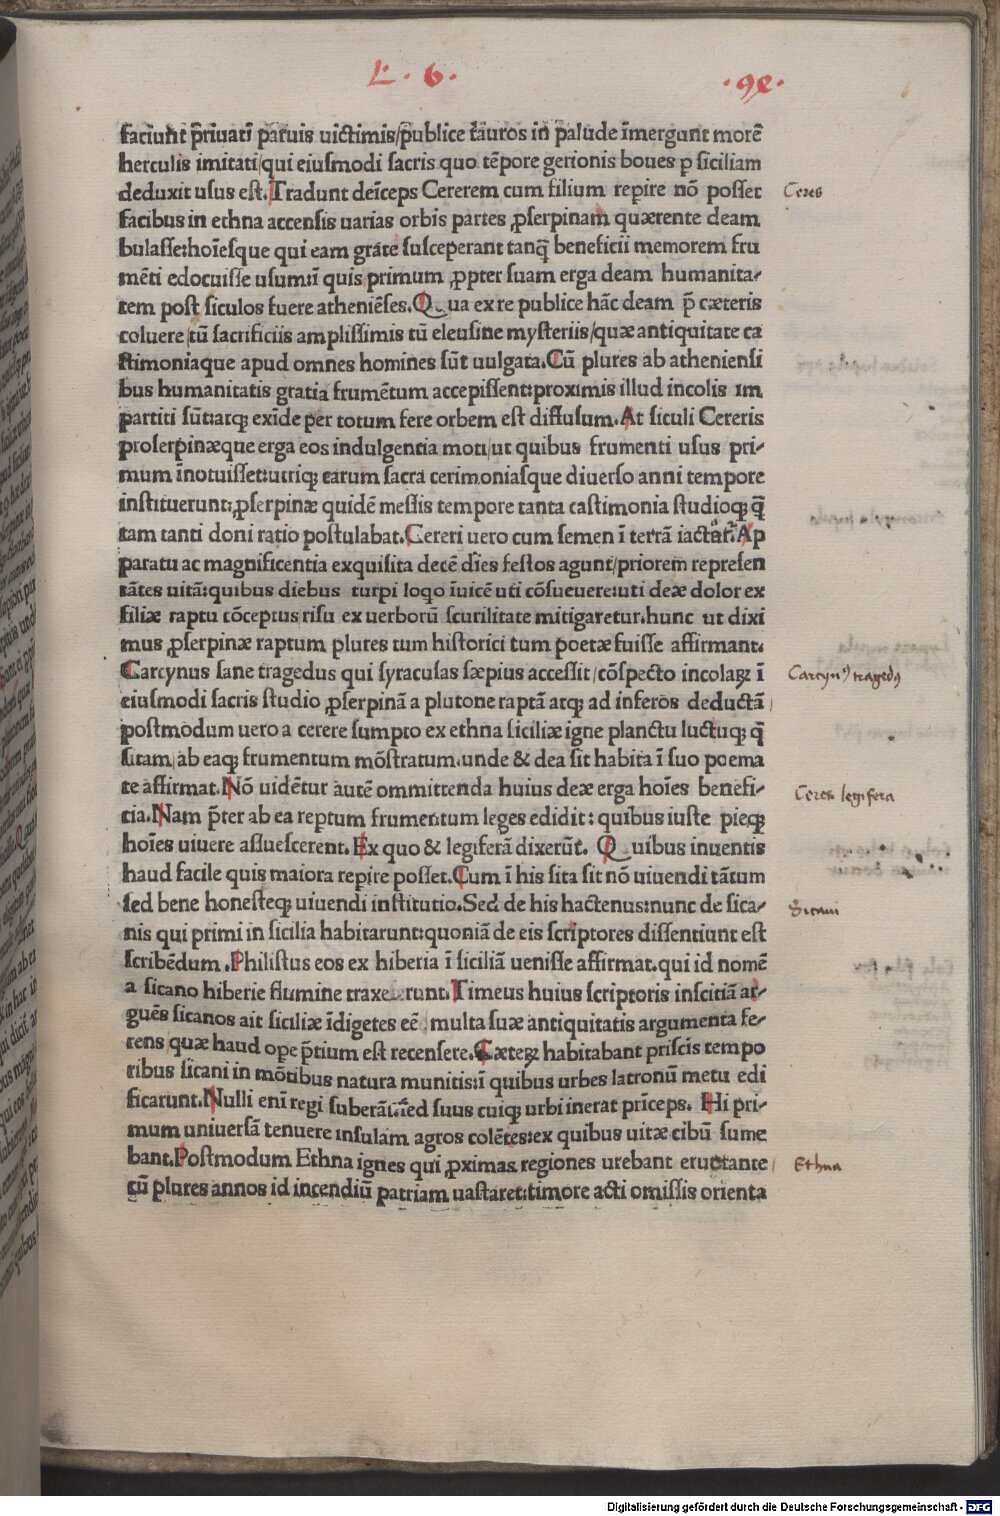 L. 6. .98.
faciunt p̄riuati paruis uictimis/p̄ublice tauros in palude īmergunt morē
herculis imitati/qui eiusmodi sacris quo tēpore gerionis boues ꝑ siciliam
deduxit usus est. Tradunt deīceps Cererem cum filium reꝑire nō posset
Ceres
facibus in ethna accensis uarias orbis partes ꝓserpinam quærente deam
bulasse:hoīesque qui eam grate susceperant tanq̄ beneficii memorem fru
mēti edocuisse usum:ī quis primum ꝓpter suam erga deam humanita-
tem post siculos fuere atheniēses. Qua ex re publice hāc deam p̄ cæteris
coluere/tū sacrificiis amplissimis tū eleusine mysteriis/quæ antiquitate ca
stimoniaque apud omnes homines sūt uulgata. Cū plures ab atheniensi
bus humanitatis gratia frumētum accepissent:proximis illud incolis im
partiti sūt:atqꝫ exīde per totum fere orbem est diffusum. At siculi Cereris
proserpinæque erga eos indulgentia moti/ut quibus frumenti usus pri-
mum īnotuisset:utriqꝫ earum sacra cerimoniasque diuerso anni tempore
instituerunt:ꝓserpinæ quidē messis tempore tanta castimonia studioqꝫ q̄
tam tanti doni ratio postulabat. Cereri uero cum semen ī terrā iactat̄. Ap
paratu ac magnificentia exquisita decē dies festos agunt/priorem represen
tātes uitā:quibus diebus turpi loqo īuicē uti cōsueuere:uti deæ dolor ex
filiæ raptu cōceptus risu ex uerborū scurilitate mitigaretur.hunc ut dixi
mus ꝓserpinæ raptum plures tum historici tum poetæ fuisse affirmant.
Carcynus sane tragedus qui syracusas sæpius accessit/cōspecto incolaꝝ ī
Carcynꝰ tragedꝰ
eiusmodi sacris studio ꝓserpinā a plutone raptā atqꝫ ad inferos deductā/
postmodum uero a cerere sumpto ex ethna siciliæ igne planctu luctuqꝫ q̄
sitam/ab eaqꝫ frumentum mōstratum.unde & dea sit habita ī suo poema
te affirmat. Nō uidētur autē ommittenda huius deæ erga hoīes benefi-
Ceres legifera
cia. Nam p̄ter ab ea reptum frumentum leges edidit: quibus iuste pieqꝫ
hoīes uiuere assuescerent. Ex quo & legiferā dixerūt. Quibus inuentis
haud facile quis maiora reꝑire posset. Cum ī his sita sit nō uiuendi tātum
sed bene honesteqꝫ uiuendi institutio. Sed de his hactenus:nunc de sica-
Sicani
nis qui primi in sicilia habitarunt:quoniā de eis scriptores dissentiunt est
scribēdum. Philistus eos ex hiberia ī siciliā uenisse affirmat.qui id nomē
a sicano hiberie flumine traxerunt. Timeus huius scriptoris inscitiā ar-
guēs sicanos ait siciliæ īdigetes eē: multa suæ antiquitatis argumenta fe-
rens/quæ haud ope p̄tium est recensere. Cæteꝝ habitabant priscis tempo
ribus sicani in mōtibus natura munitis:ī quibus urbes latronū metu edi
ficarunt. Nulli enī regi suberāt:sed suus cuiqꝫ urbi inerat prīceps. Hi pri-
mum uniuersā tenuere insulam agros colētes:ex quibus uitæ cibū sume
bant. Postmodum Ethna ignes qui ꝓximas regiones urebant eructante/
Ethna
cū plures annos id incendiū patriam uastaret:timore acti omissis orienta
Digitalisierung gefördert durch die Deutsche Forschungsgemeinschaft - DFG